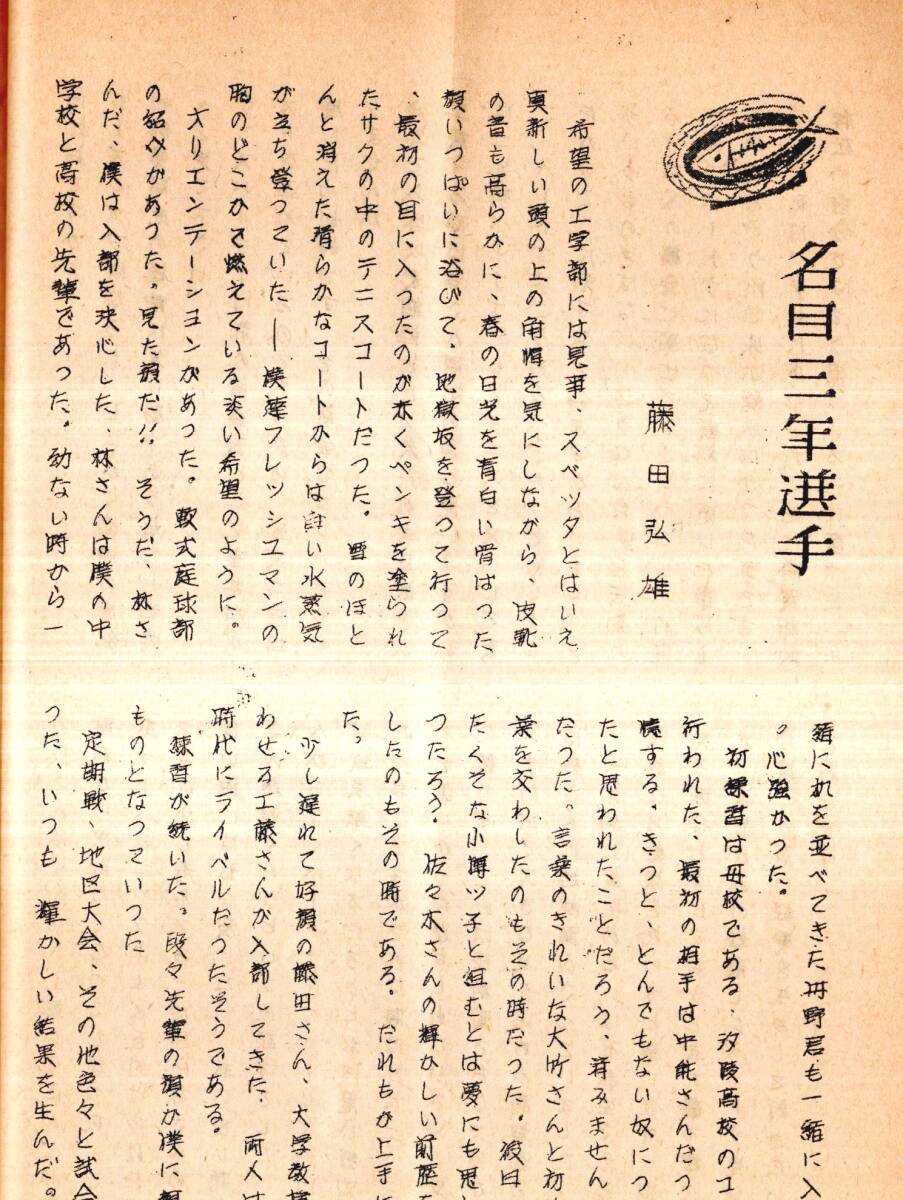 名目三年選手
藤田弘雄
希望の工学部には見事、スベツタとはいえ
真新しい頭の上の角帽を気にしながら、皮靴
の音も高らかに、春の日光を青白い骨はつた
顔いつぱいに浴びて、地獄坂を登つて行つて
、最初の目に入つたのが赤くペンキを塗られ
たサクの中のテニスコートだつた。雪のほと
んと消えた滑らかなコートからは白い水蒸気
が立ち登つていた―僕達フレツシユマンの
胸のどこかで燃えている淡い希望のように。
オリエンテーシヨンがあつた。軟式庭球部
の紹介があつた。見た顔だ!!そうだ、林さ
んだ、僕は入部を決心した、林さんは僕の中
学校と高校の先輩であつた。幼ない時から一
緒に机を並べてきた丹野君も一緒に入
。心強かつた。
初練習は母校である、汐陵高校のコ
行われた、最初の相手は中能さんだつ
憶する。きつと、とんでもない奴につ
たと思われたことだろう、済みません
だつた。言葉のきれいな大竹さんと初
葉を交わしたのもその時だつた。後日
たくそな小樽ツ子と組むとは夢にも思
つたろう。佐々木さんの輝かしい前歴を
したのもその時である。だれもが上手に
た。
少し遅れて好顔の藤田さん、大学教
わせる工藤さんが入部してきた、両人は
時代にライベルだつたそうである。
練習が続いた。段々先輩の顔が僕に
ものとなつていつた
定期戦、地区大会、その他色々と試合
つた、いつも輝かしい結果を生んだ。